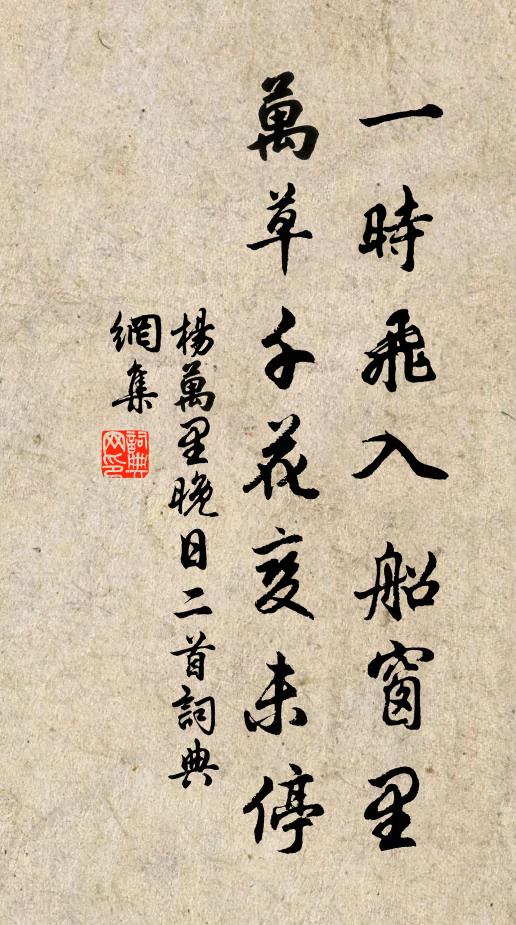 一時飛入船窗里
萬草千花变未停
楊萬里晚日二首詞典
網集
詞典
网印